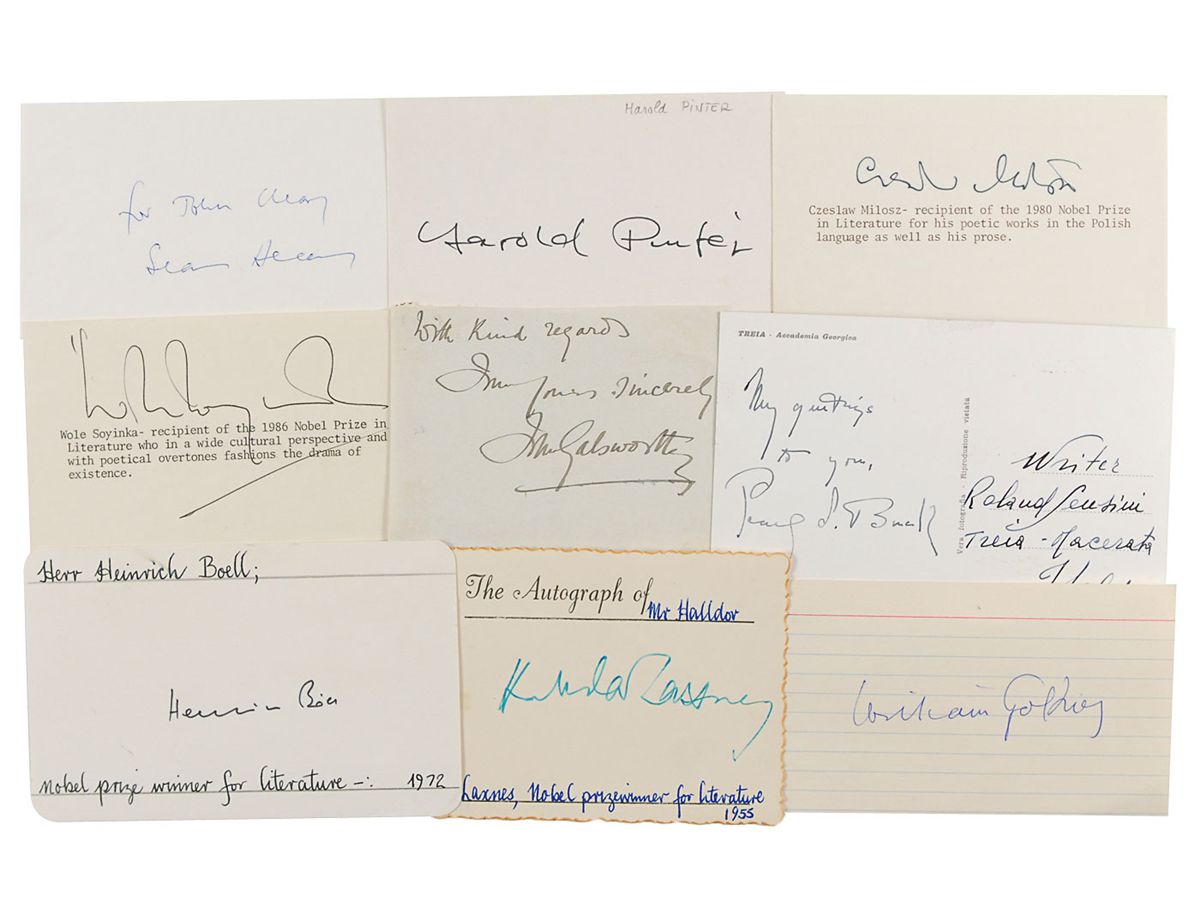 for John Cleary
Seamus Heaney
Harold PINTER
Harold Pinter
Czeslaw Milosz- recipient of the 1980 Nobel Prize
in Literature for his poetic works in the Polish
language as well as his prose.
Wole Soyinka- recipient of the 1986 Nobel Prize in
Literature who in a wide cultural perspective and
with poetical overtones fashions the drama of
existence.
With Kind regards
yours sincerely
John Galsworthy
TREIA - Accademia Georgica
My greetings
to you,
Pearl S. Buck
Vera fotografia - Riproduzione vietata
Writer
Roland Sensini
Treia - Macerata
Herr Heinrich Boell;
Heinrich Böll
Nobel prize winner for literature -: 1972
The Autograph of Mr Halldor
Laxnes, Nobel prizewinner for literature
1955
William Golding